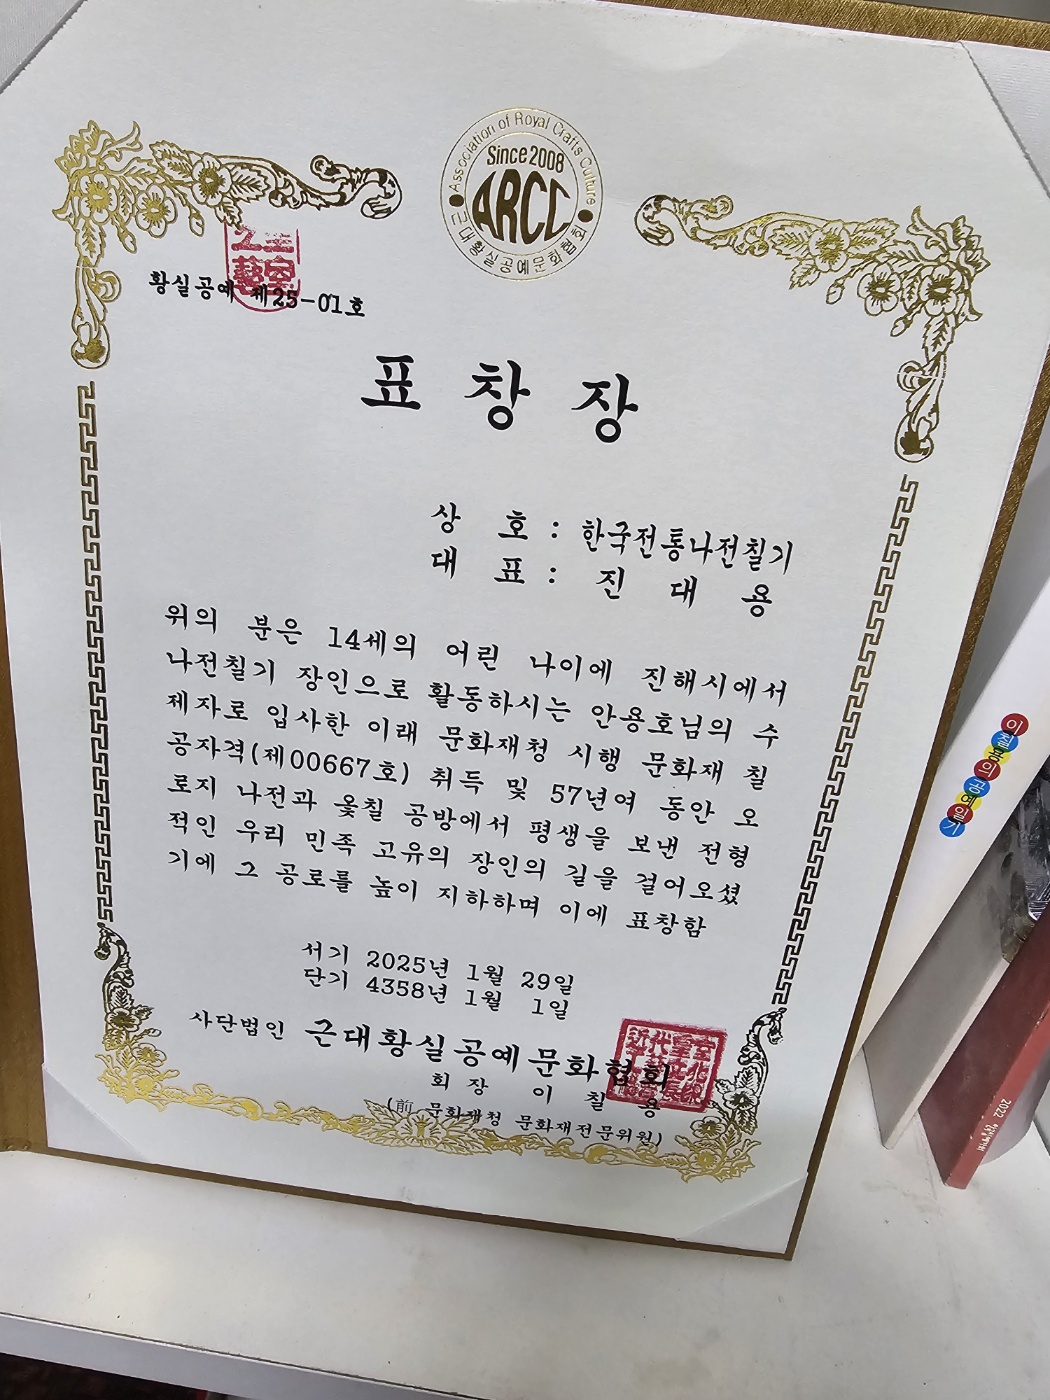 Association of Royal Crafts Culture
Since 2008
ARCC
근대황실공예문화협회
황실공예 제25-01호
표창장
상 호 : 한국전통나전칠기
대 표 : 진 대 용
위의 분은 14세의 어린 나이에 진해시에서
나전칠기 장인으로 활동하시는 안용호님의 수
제자로 입사한 이래 문화재청 시행 문화재 칠
공자격(제00667호) 취득 및 57년여 동안 오
로지 나전과 옻칠 공방에서 평생을 보낸 전형
적인 우리 민족 고유의 장인의 길을 걸어오셨
기에 그 공로를 높이 지하하며 이에 표창함
서기 2025년 1월 29일
단기 4358년 1월 1일
사단법인 근대황실공예문화협회
회 장 이 칠 용
(前 문화재청 문화재전문위원)
이칠용의 공예일기
2022